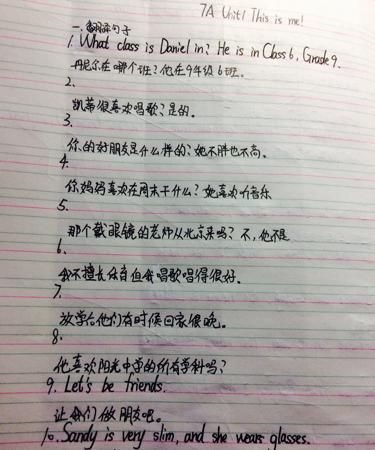 7A Unit1 This is me!
一.翻译句子
1. What class is Daniel in? He is in Class 6, Grade 9.
丹尼尔在哪个班?他在9年级6班。
2.
凯蒂很喜欢唱歌?是的。
3.
你的好朋友是什么样的?她不胖也不高。
4.
你妈妈喜欢在周末干什么?她喜欢听音乐
5.
那个戴眼镜的老师从北京来吗?不,他不是
6.
我不擅长体育但我唱歌唱得很好。
7.
放学后他们有时候回家很晚。
8.
他喜欢阳光中学的所有学科吗?
9. Let's be friends.
让我们做朋友吧。
10. Sandy is very slim, and she wears glasses.